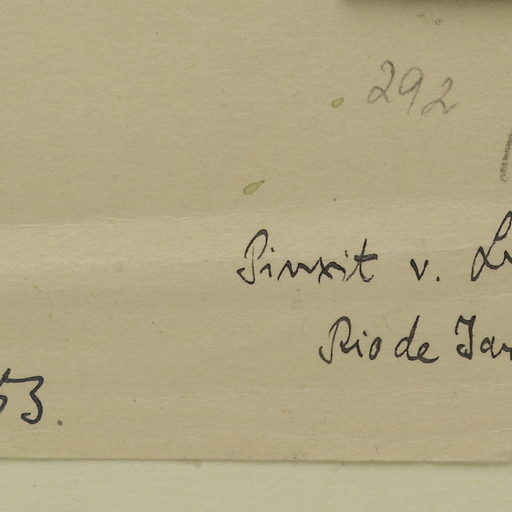 292
Pinxit v.
Rio de
53.